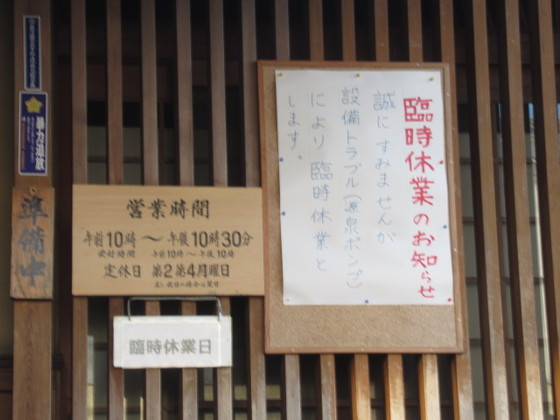 臨時休業のお知らせ
誠にすみませんが
設備トラブル(源泉ポンプ)
により臨時休業と
します。
営業時間
午前10時〜午後10時30分
受付時間 午前10時〜午後10時
定休日 第2第4月曜日
臨時休業日
準備中